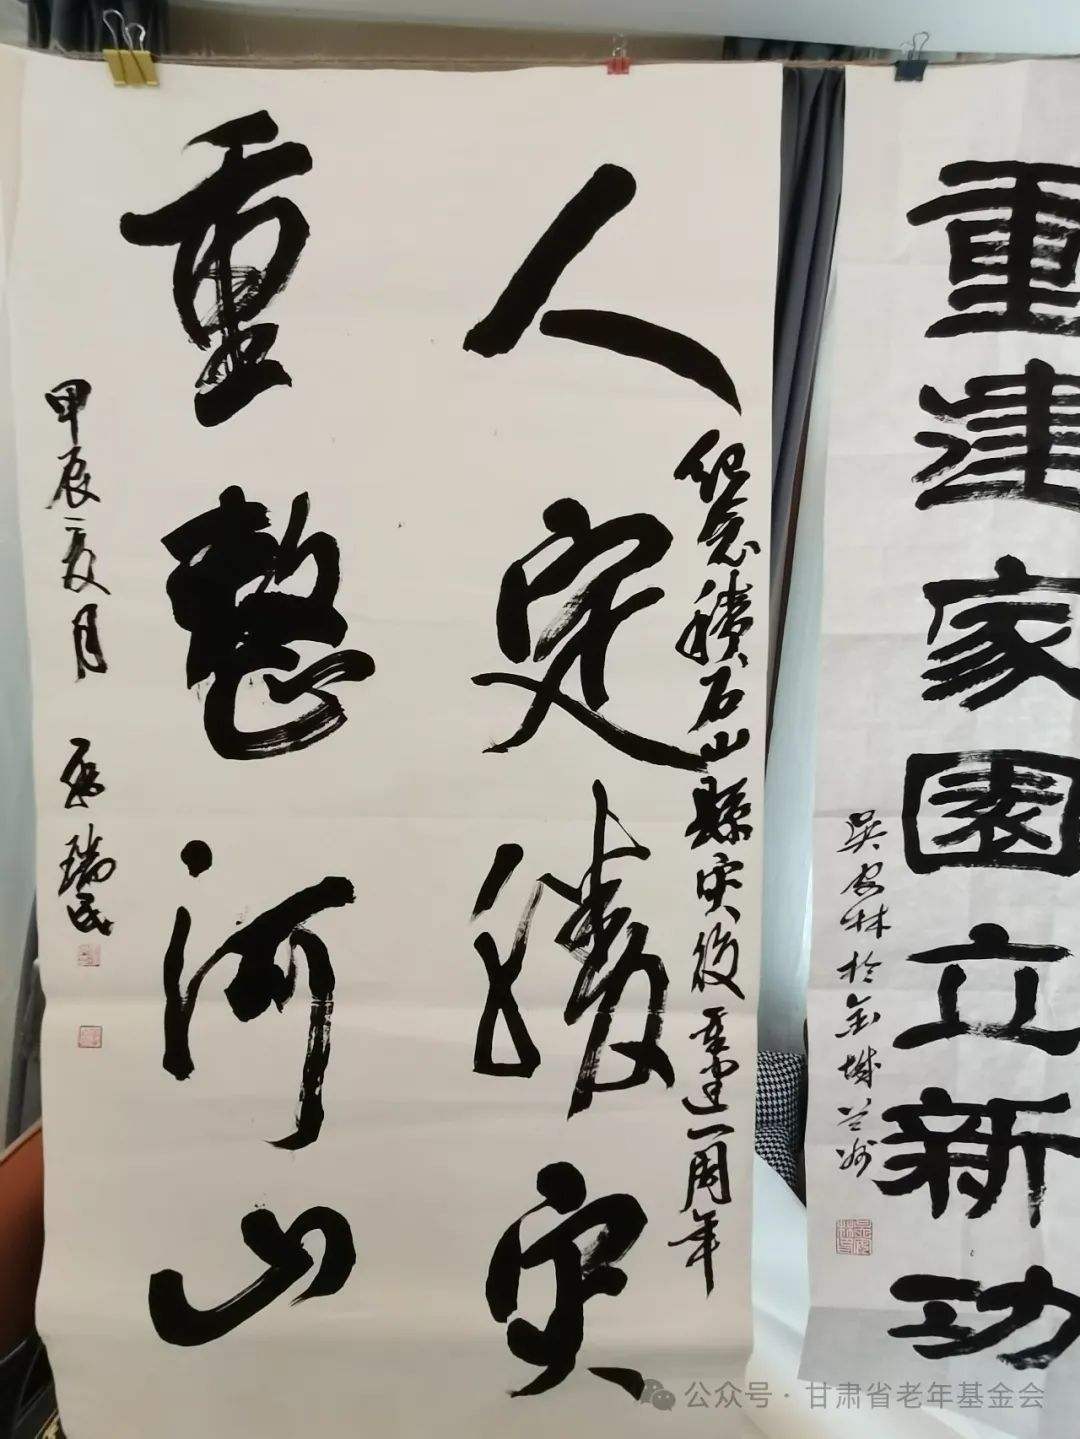 重建家園立新功
吳安林於金城兰州
紀念積石山縣灾後重建一周年
人定勝灾
重整河山
甲辰夏月 瑞民
公众号·甘肃省老年基金会